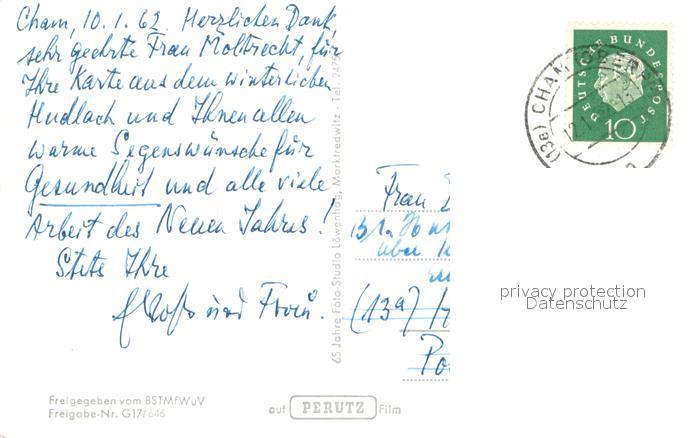 Cham, 10.1.62. Herzlichen Dank,
sehr geehrte Frau Moltrecht, für
Ihre Karte aus dem winterlichen
Hudlach und Ihnen allen
warme Segenswünsche für
Gesundheit und alle viele
Arbeit des Neuen Jahres!
Stets Ihre
und Frau.
Freigegeben vom BSTMfWuV
Freigabe-Nr. G17/646
65 Jahre Foto-Studio Löwenhag, Marktredwitz · Tel. 2475
auf PERUTZ Film
Frau
über
(13a)
Po
DEUTSCHE BUNDESPOST
10
(13a) CHAM (OBERPF
privacy protection
Datenschutz